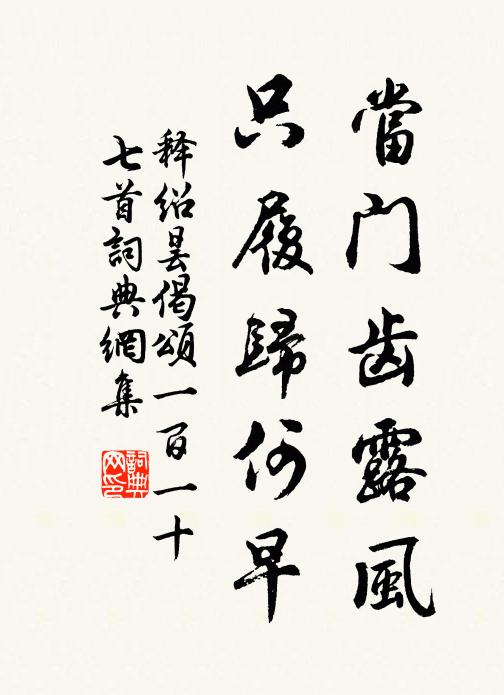 當门齿露風
只履歸何早
释绍昙偈頌一百一十
七首詞典網集
詞典
网印